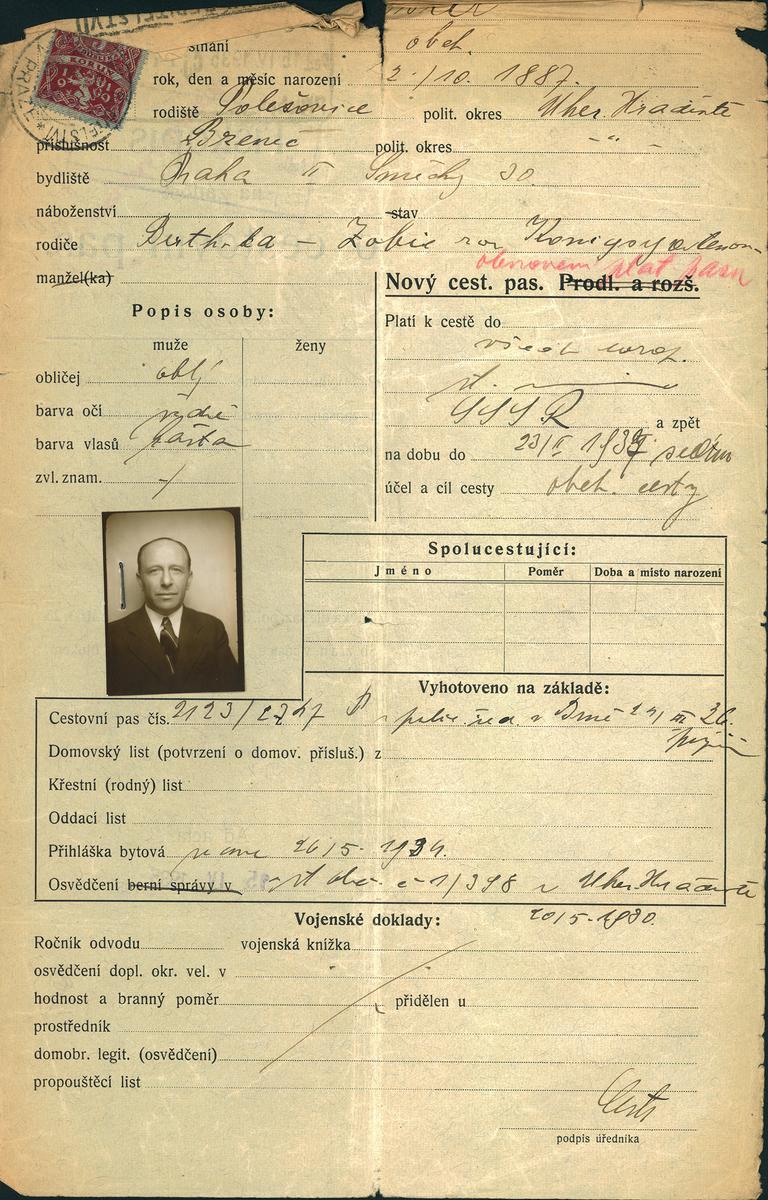 obch.
rok, den a měsíc narození 2./10. 1887.
rodiště Polešovice polit. okres Uher. Hradiště
příslušnost Březnic polit. okres - " -
bydliště Praha II Smečky 30.
náboženství stav
rodiče Berth. ba - Žofie roz
manžel(ka)
plat. pasu
Nový cest. pas. Prodl. a rozš.
Popis osoby:
muže ženy
obličej oblý
barva očí
barva vlasů
zvl. znam. -/
Platí k cestě do
všech evrop.
st.
SSSR a zpět
na dobu do 23/II 1937
účel a cíl cesty obch. cesty
Spolucestující:
Jméno Poměr Doba a místo narození
Vyhotoveno na základě:
Cestovní pas čís. 2123/ polic. řed. v Brně
Domovský list (potvrzení o domov. přísluš.) z
Křestní (rodný) list
Oddací list
Přihláška bytová ze dne 26/5. 1934.
Osvědčení berní správy v č 1/398 v Uher. Hradiště
20/5. 1930.
Vojenské doklady:
Ročník odvodu vojenská knížka
osvědčení dopl. okr. vel. v
hodnost a branný poměr přidělen u
prostředník
domobr. legit. (osvědčení)
propouštěcí list
podpis úředníka